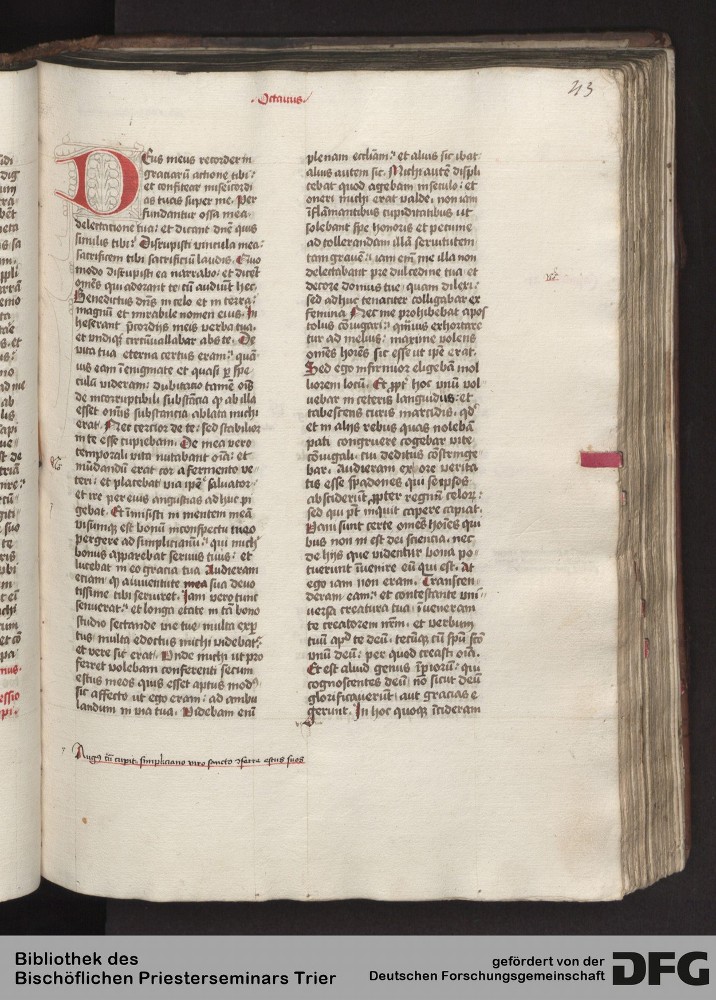 Octauus
43
Deus meus recorder in
gratiarum actione tibi:
et confitear misericordi
as tuas super me. Per
fundantur ossa mea
delectatione tua: et dicant dne quis
similis tibi? Disrupisti vincula mea:
sacrificem tibi sacrificiu laudis. Quo
modo disrupisti ea narrabo: et dicet
oms qui adorant te cu audiut hec.
Benedictus dns in celo et in terra:
magnu et mirabile nomen eius. In
heserant pcordijs meis verba tua.
et vndiq circuuallabar abs te. De
vita tua eterna certus eram: quā
uis eam i enigmate et quasi p spe
culu videram: dubitatio tame ois
de incorruptibili substācia q ab illa
esset omis substantia ablata michi
erat. Nec certior de te: sed stabilior
in te esse cupiebam. De mea vero
temporali vita nutabant oia: et
mudandu erat cor a fermento ve
teri: et placebat via ipe saluator
et ire per eius angustias adhuc pi
gebat. Et imisisti in mentem mea
visumq est bonu in conspectu meo
pergere ad simplicianu: qui mich
bonus apparebat seruus tuus: et
lucebat in eo gracia tua. Audieram
etiam q a iuuentute mea sua deuo
tissime tibi serviret. Jam vero tunc
senuerat: et longa etate in ta bono
studio sectande vie tue multa exp
tus multa edoctus michi videbat
et vere sic erat. Unde michi ut pro
ferret volebam conferenti secum
estus meos quis esset aptus mod
sic affecto ut ego eram: ad ambu
landum in via tua. Videbam eni
plenam eccliam: et alius sic ibat
alius autem sic. Michi aute displi
cebat quod agebam in seculo: et
oneri michi erat valde. non iam
iflamantibus cupiditatibus ut
solebant spe honoris et pecunie
ad tollerandam illa seruitutem
tam graue: iam eni me illa non
delectabant pre dulcedine tua et
decore domus tue quam dilexi:
sed adhuc tenaciter colligabar ex
femina. Nec me prohibebat apos
tolus coiugari: quuis exhortare
tur ad melius: maxime volens
oms hoies sic esse ut ipe erat.
Sed ego infirmior eligebam mol
liorem locu. Et ppt hoc vnu vol
uebar in ceteris languidus: et
tabescens curis marcidis. qd
et in alijs rebus quas noleba
pati congruere cogebar vite
coiugali. cui deditus costringe
bar. Audieram ex ore verita
tis esse spadones qui seipsos
absciderut ppter regnu celor:
sed qui pt inquit capere capiat.
Vani sunt certe omes hoies qui
bus non in est dei sciencia. nec
de hijs que videntur bona po
tuerunt iuenire eu qui est. At
ego iam non eram. Transcen
deram eam: et contestante vni
uersa creatura tua iueneram
te creatorem nrm. et verbum
tuu apd te deu. tecuq cu spu sco
vnu deu: per quod creasti oia.
Et est aliud genus ipioru: qui
cognoscentes deu no sicut deu
glorificauerut: aut gracias e
gerunt. In hoc quoq icideram
Aug9 cu cupit simpliciano viro sancto 9ferre estus suos
Bibliothek des
Bischöflichen Priesterseminars Trier
gefördert von der
Deutschen Forschungsgemeinschaft
DFG